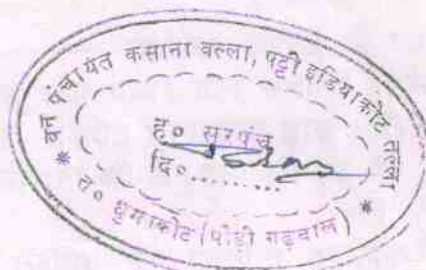 * वन पंचायत कसाना वल्ला, पट्टी इडियाकोट तल्ला *
ह० सरपंच
दि०.........
त० धुमाकोट (पौड़ी गढ़वाल)